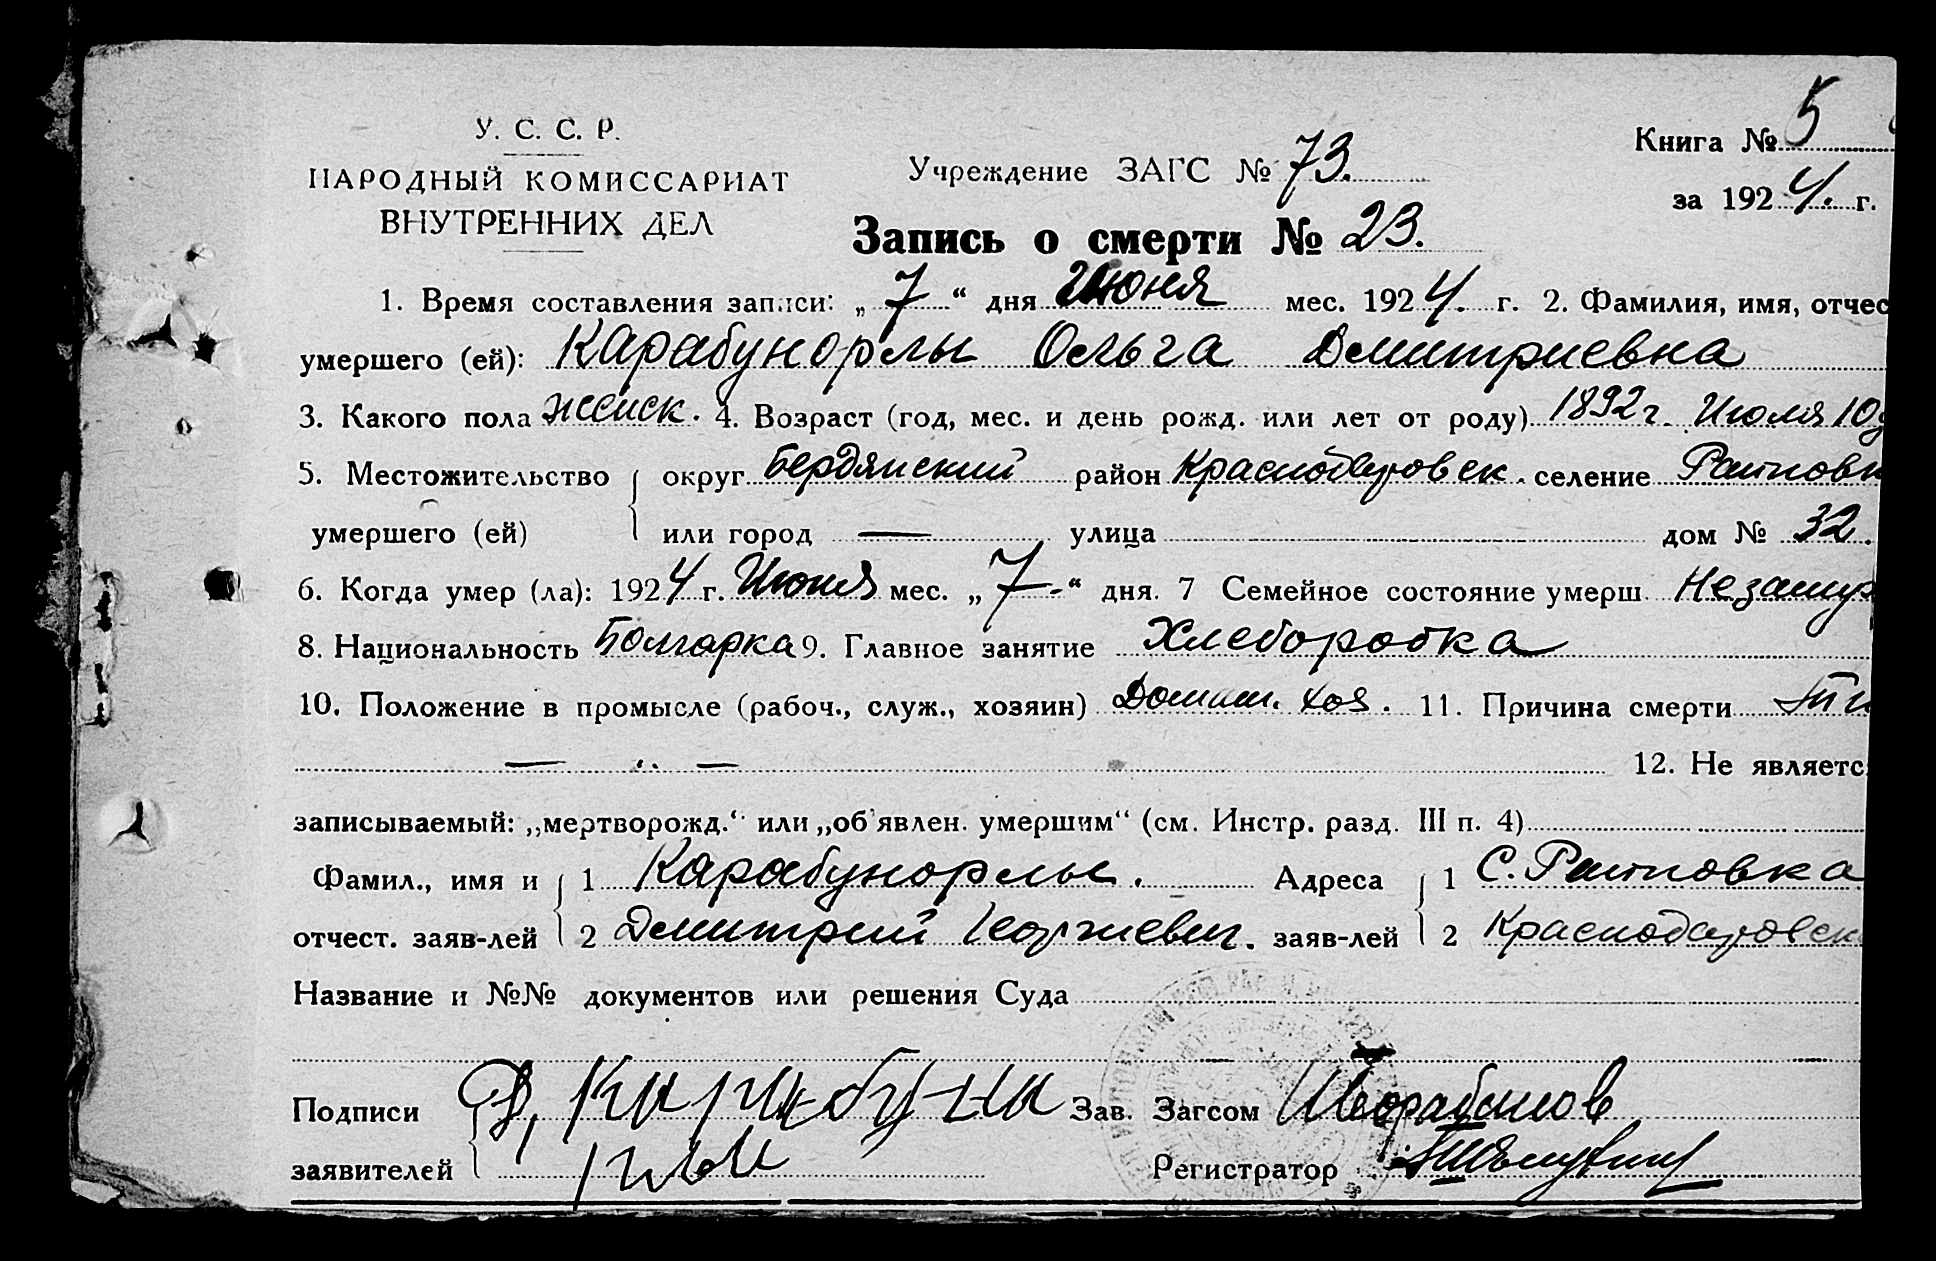 У. С. С. Р.
НАРОДНЫЙ КОМИССАРИАТ
ВНУТРЕННИХ ДЕЛ
Учреждение ЗАГС № 73.
Книга № 5
за 1924. г.
Запись о смерти № 23.
1. Время составления записи: „7“ дня Июня мес. 1924. г. 2. Фамилия, имя, отчес
умершего (ей): Карабунорлы Ольга Дмитриевна
3. Какого пола женск. 4. Возраст (год, мес. и день рожд. или лет от роду) 1892 г. Июля 10
5. Местожительство округ Бердянский район Краснодаровск. селение
умершего (ей) или город — улица дом № 32.
6. Когда умер (ла): 1924 г. Июня мес. „7“ дня. 7 Семейное состояние умерш. Незамуж
8. Национальность Болгарка 9. Главное занятие Хлеборобка
10. Положение в промысле (рабоч., служ., хозяин) Домаш. хоз. 11. Причина смерти
— " —
12. Не являетс
записываемый: „мертворожд.“ или „об'явлен. умершим“ (см. Инстр. разд. III п. 4)
Фамил., имя и 1 Карабунорлы. Адреса 1 С.
отчест. заяв-лей 2 Дмитрий Георгиевич. заяв-лей 2 Краснодаровск
Название и №№ документов или решения Суда
Подписи Д. Карабуна Зав. Загсом
заявителей Регистратор